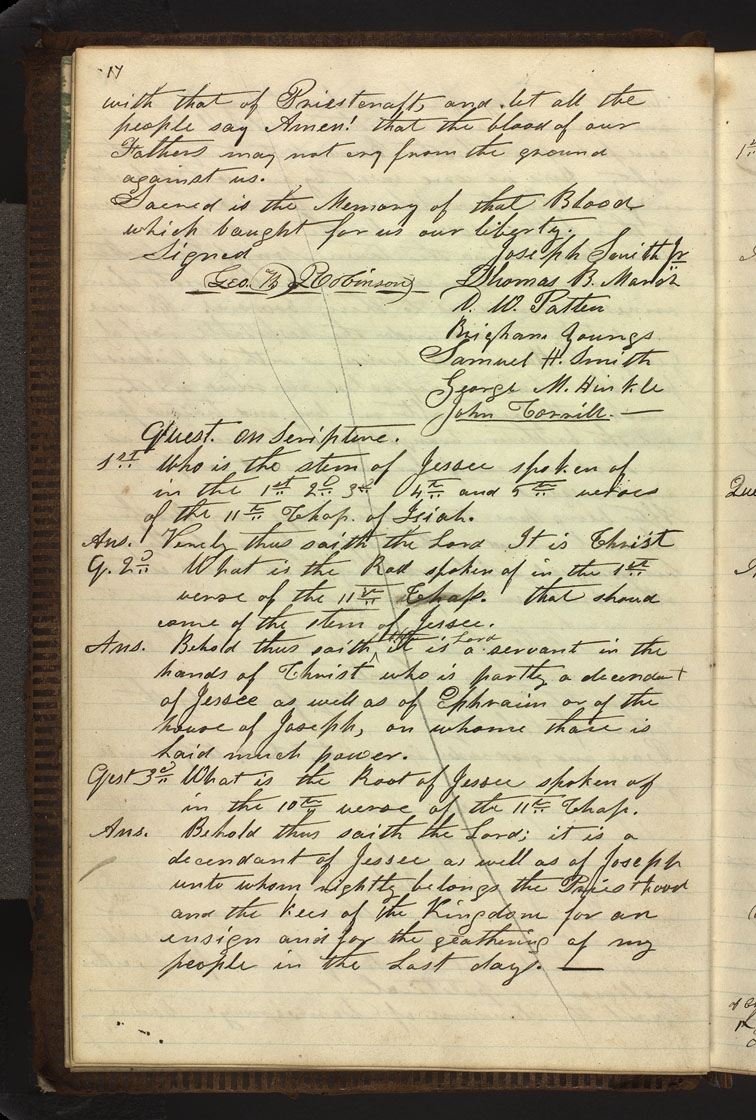 17
with that of Priestcraft, and let all the
people say Amen! that the blood of our
Fathers may not cry from the ground
against us.
Sacred is the Memory of that Blood
which baught for us our liberty.
Signed
Joseph Smith Jr
Geo. W. Robinson
Thomas B. Marsh
D. W. Patten
Brigham Youngs
Samuel H. Smith
George M. Hinkle
John Corrill. —
Quest. on Scripture.
1st Who is the stem of Jessee spoken of
in the 1st 2d 3d 4th and 5th verses
of the 11th Chap. of Isiah.
Ans. Verely thus saith the Lord It is Christ
Q. 2d What is the Rod spoken of in the 1st
verse of the 11th Chap. that shoud
come of the stem of Jessee.
Ans. Behold thus saith the Lord it is a servant in the
hands of Christ who is partly a decendant
of Jessee as well as of Ephraim or of the
house of Joseph, on whome thare is
Laid much power.
Qest 3d What is the Root of Jessee spoken of
in the 10th verse of the 11th Chap.
Ans. Behold thus saith the Lord; it is a
decendant of Jessee as well as of Joseph
unto whom rightly belongs the Priesthood
and the kees of the Kingdom for an
ensign and for the geathering of my
people in the Last days. —
1st
Que